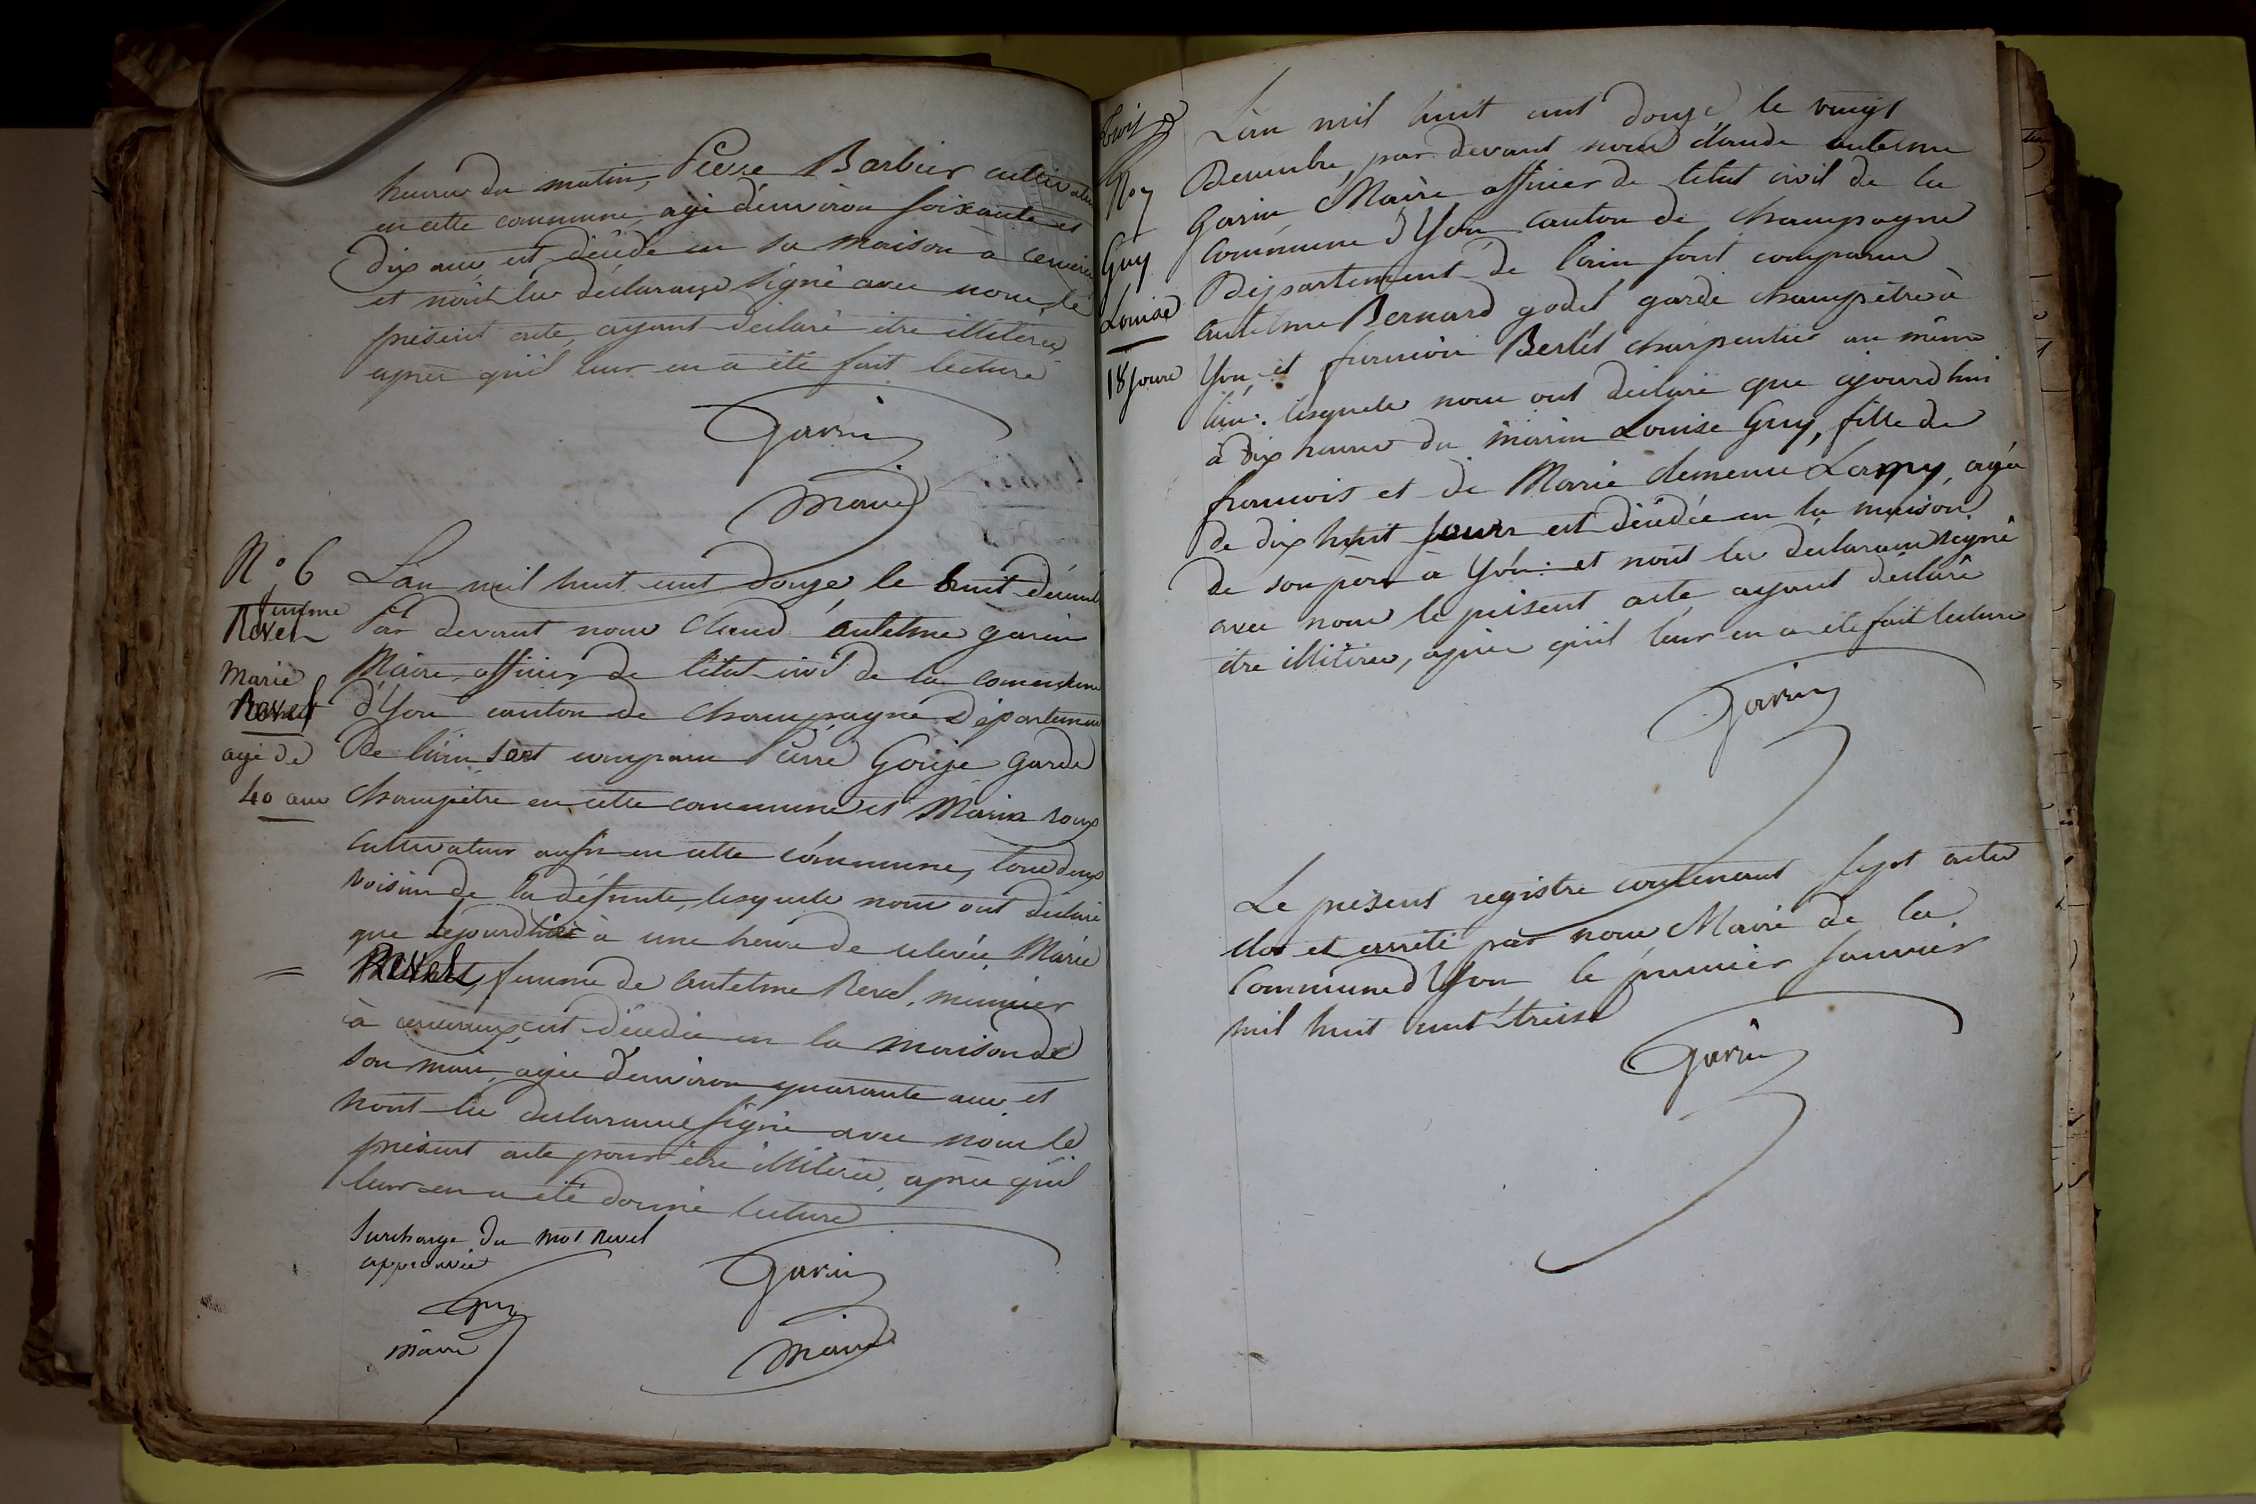 heures du matin, Pierre Barbier cultivateur
en cette commune, agé d'environ soixante et
dix ans est décédé en sa maison à
et n'ont les déclarans signé avec nous le
présent acte, ayant déclaré être illitérés,
après qu'il leur en a été fait lecture
Garin
Maire
N° 6
femme
Revel
Marie
Revel
agé de
40 ans
L'an mil huit cent douze le huit décembre
Par devant nous Claud antelme garin
Maire, officier de l'état civil de la commune
d'Yon canton de champagne Département
De l'ain sont comparu Pierre Gouje garde
champêtre en cette commune et Marin roux
cultivateur aussi en cette commune, tous deux
voisins de la défunte, lesquels nous ont déclaré
que cejourd'hui à une heure de relevée Marie
Revel, femme de antelme Revel, munier
à est décédée en la maison de
son mari, agée d'environ quarante ans et
n'ont les declarans signé avec nous le
présent acte pour être illitérés, après qu'il
leur en a été donné lecture
Surcharge du mot Revel
approuvée
Garin
Maire
maire
N° 7
Guy
Louise
18 jours
L'an mil huit cent douze le vingt
Decembre, par devant nous claude antelme
Garin Maire officier de l'état civil de la
Commune d'Yon canton de champagne
Département de l'ain sont comparus
antelme Bernard godet garde champêtre à
Yon et Berlet charpentier au même
lieu: lesquels nous ont déclaré que ajourd'hui
à dix heures du matin Louise Guy, fille de
francois et de Marie clemence Lapy, agée
de dix huit jours est décédée en la maison
de son père à Yon: et n'ont les déclarans signé
avec nous le présent acte ayant déclaré
être illitérés, après qu'il leur en a été fait lecture
Garin
Le présent registre contenant sept actes
clos et arrêté par nous Maire de la
Commune d'Yon le premier janvier
mil huit cent treise
Garin